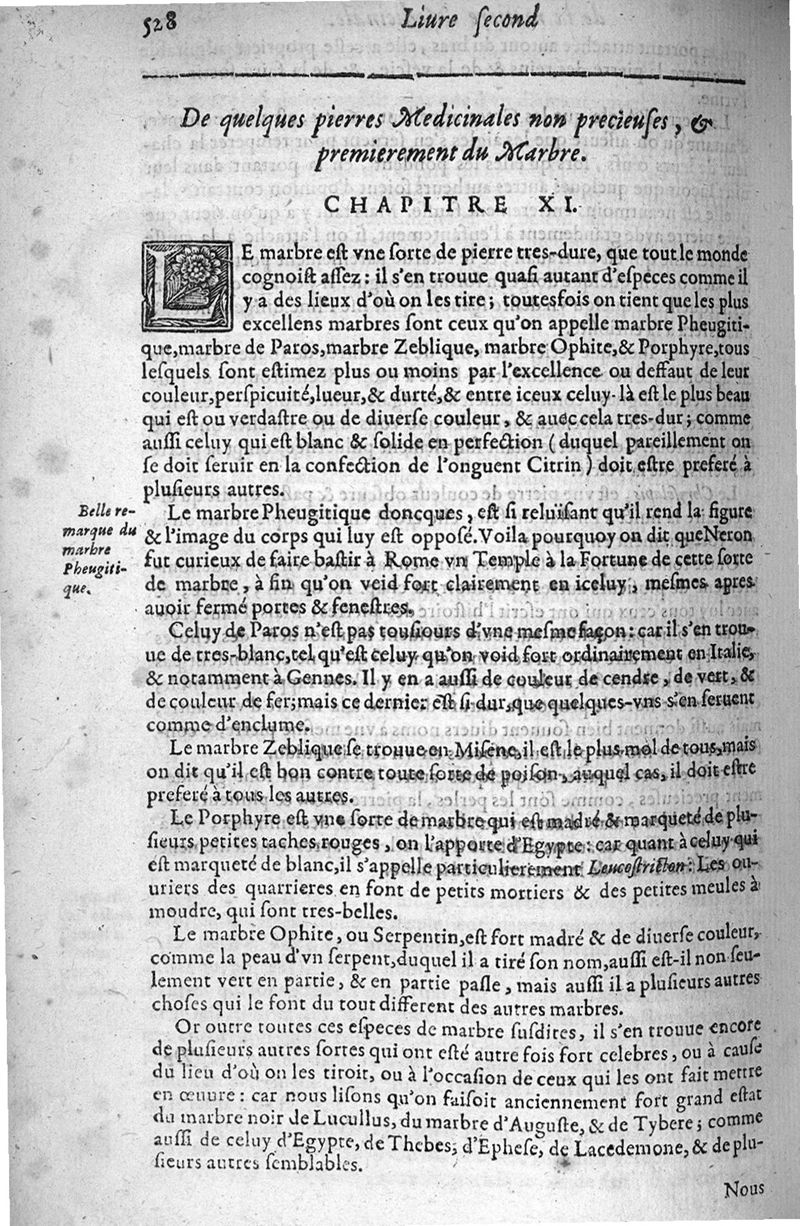 528
Liure second
De quelques pierres Medicinales non precieuses, &
premierement du Marbre.
CHAPITRE XI.
LE marbre est vne sorte de pierre tres-dure, que tout le monde
cognoist assez : il s'en trouue quasi autant d'especes comme il
y a des lieux d'où on les tire ; toutesfois on tient que les plus
excellens marbres sont ceux qu'on appelle marbre Pheugiti-
que, marbre de Paros, marbre Zeblique, marbre Ophite, & Porphyre, tous
lesquels sont estimez plus ou moins par l'excellence ou deffaut de leur
couleur, perspicuité, lueur, & durté, & entre iceux celuy-là est le plus beau
qui est ou verdastre ou de diuerse couleur, & auec cela tres-dur ; comme
aussi celuy qui est blanc & solide en perfection ( duquel pareillement on
se doit seruir en la confection de l'onguent Citrin ) doit estre preferé à
plusieurs autres.
Belle re-
marque du
marbre
Pheugiti-
que.
Le marbre Pheugitique doncques, est si reluisant qu'il rend la figure
& l'image du corps qui luy est opposé. Voila pourquoy on dit que Neron
fut curieux de faire bastir à Rome vn Temple à la Fortune de cette sorte
de marbre, à fin qu'on veid fort clairement en iceluy, mesmes apres
auoir fermé portes & fenestres.
Celuy de Paros n'est pas tousiours d'vne mesme façon : car il s'en trou-
ue de tres-blanc, tel qu'est celuy qu'on void fort ordinairement en Italie,
& notamment à Gennes. Il y en a aussi de couleur de cendre, de vert, &
de couleur de fer; mais ce dernier est si dur, que quelques-vns s'en seruent
comme d'enclume.
Le marbre Zeblique se trouue en Misene, il est le plus mol de tous, mais
on dit qu'il est bon contre toute sorte de poison, auquel cas, il doit estre
preferé à tous les autres.
Le Porphyre est vne sorte de marbre qui est madré & marqueté de plu-
sieurs petites taches rouges, on l'apporte d'Egypte : car quant à celuy qui
est marqueté de blanc, il s'appelle particulierement Leucostricton : Les ou-
uriers des quarrieres en font de petits mortiers & des petites meules à
moudre, qui sont tres-belles.
Le marbre Ophite, ou Serpentin, est fort madré & de diuerse couleur,
comme la peau d'vn serpent, duquel il a tiré son nom, aussi est-il non seu-
lement vert en partie, & en partie pasle, mais aussi il a plusieurs autres
choses qui le font du tout different des autres marbres.
Or outre toutes ces especes de marbre susdites, il s'en trouue encore
de plusieurs autres sortes qui ont esté autre fois fort celebres, ou à cause
du lieu d'où on les tiroit, ou à l'occasion de ceux qui les ont fait mettre
en œuure : car nous lisons qu'on faisoit anciennement fort grand estat
du marbre noir de Lucullus, du marbre d'Auguste, & de Tybere ; comme
aussi de celuy d'Egypte, de Thebes, d'Ephese, de Lacedemone, & de plu-
sieurs autres semblables.
Nous